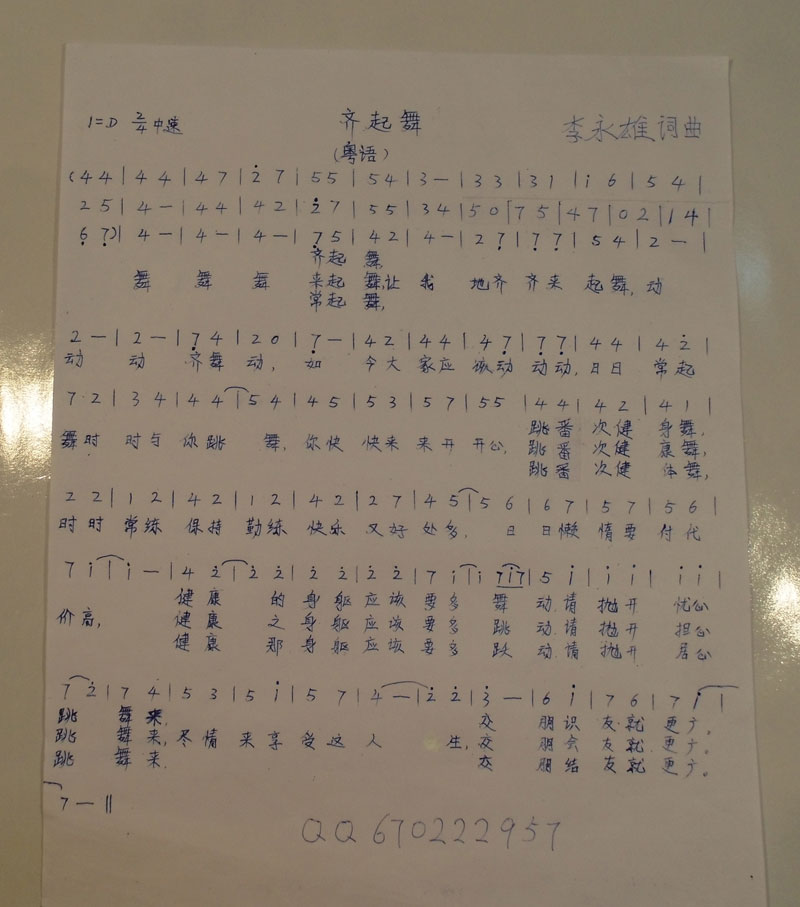 1=D 2/4 中速 齐起舞 李永雄词曲
(粤语)
(44|44|47|2̇7|55|54|3-|33|31|i6|54|
25|4-|44|42|2̇7|55|34|50|75|47|02|14|
6̣7̣)|4-|4-|4-|7̣5|42|4-|27̣|7̣7̣|54|2-|
齐起舞,
舞 舞 舞 来起舞,让我 地齐 齐来 起舞,动
常起舞,
2-|2-|7̣4|20|7̣-|42|44|47̣|7̣7̣|44|42̇|
动 动 齐舞 动, 如 今大 家应 该动 动动,日日 常起
72|34|44|54|45|53|57|55|44|42|41|
跳番 次健 身舞,
舞时 时与 你跳 舞,你快 快来 来开 开心, 跳番 次健 康舞,
跳番 次健 体舞,
22|12|42|12|42|27|45|56|67|57|56
时时 常练 保持 勤练 快乐 又好 处多, 日 日懒 惰要 付代
7i|i-|42̇|2̇2̇|2̇2̇|2̇2̇|7i|i7i7|5i|ii|ii|
健康 的身躯应该要多 舞 动.请 抛开 忧心
价高, 健康 之身躯应该要多 跳 动.请 抛开 担心
健康 那身躯应该要多 跃 动.请 抛开 居心
72̇|74|53|5i|57|4-|2̇2̇|3̇-|6i|76|7i|
跳 舞来, 交 朋识 友就 更广。
跳 舞来,尽情 来享 受这 人 生,交 朋会 友就 更广。
跳 舞来. 交 朋结 友就 更广。
7-||
QQ 670222957